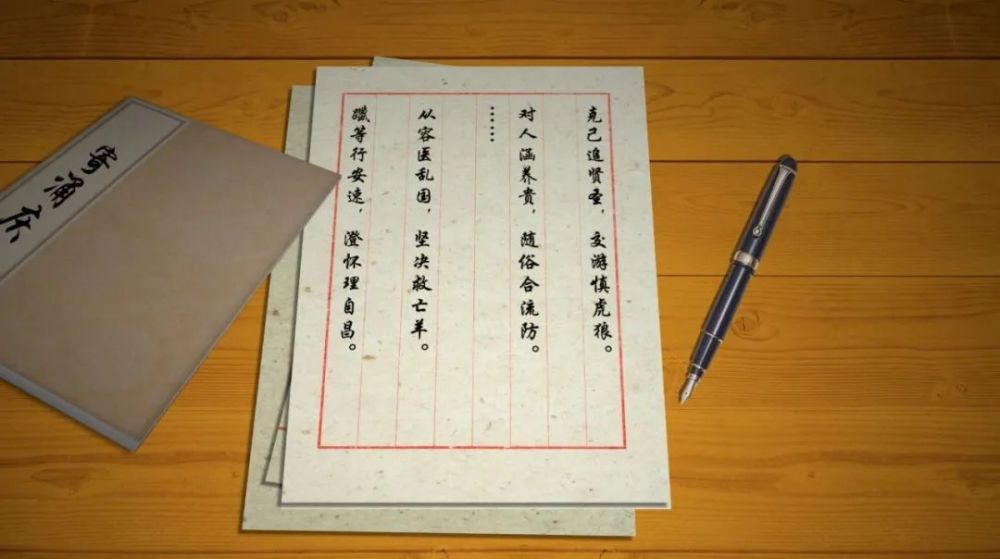 克己追贤圣，交游慎虎狼。
对人涵养贵，随俗合流防。
……
从容医乱国，坚决救亡羊。
躐等行安速，澄怀理自昌。
寄涌